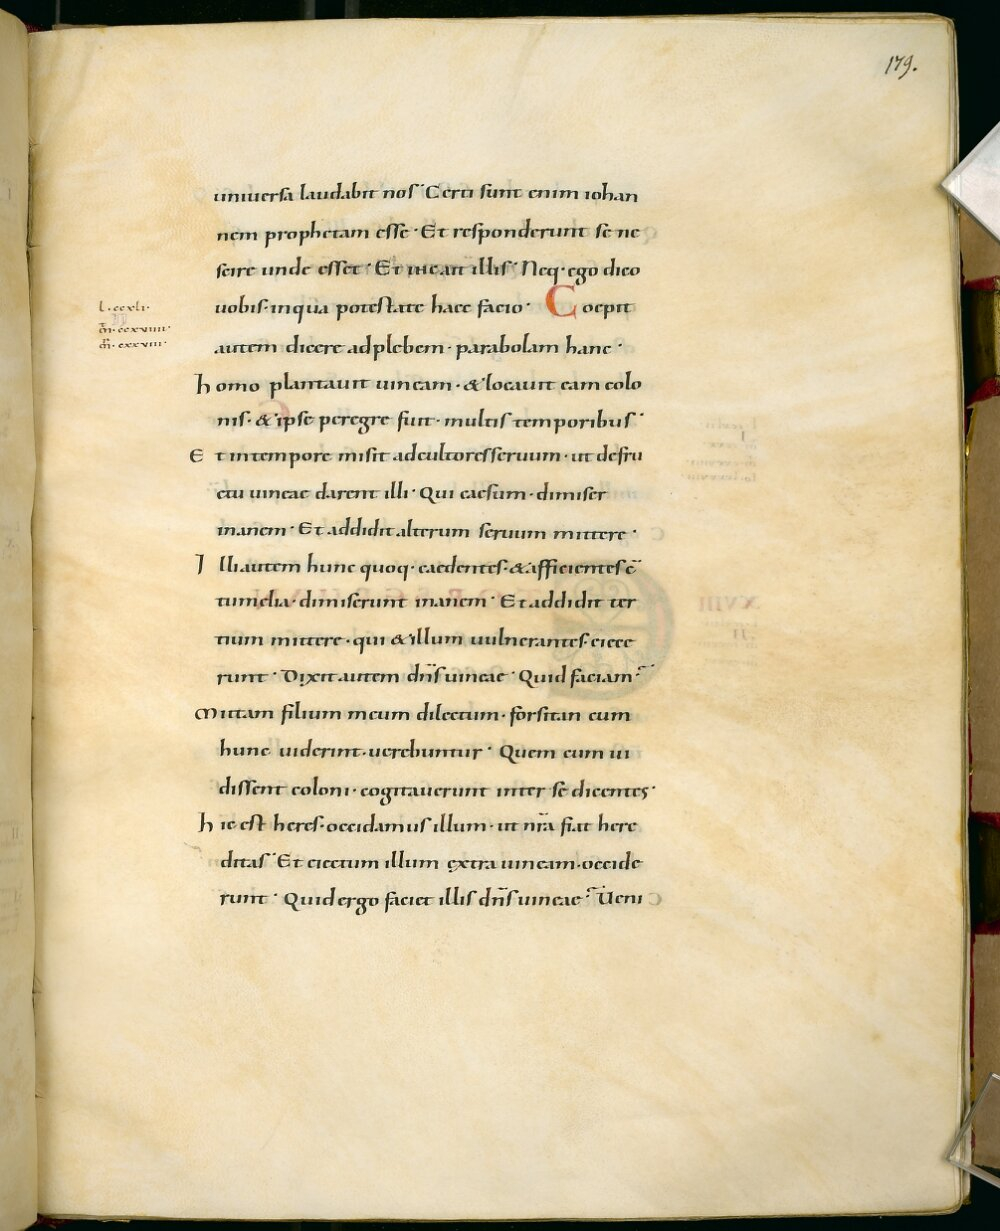 179.
uniuersa laudabit nos· Certi sunt enim iohan
nem prophetam esse· Et responderunt se ne
scire unde esset· Et ihc ait illis· Neq· ego dico
uobis· in qua potestate haec facio· Coepit
l· ccxli·
m̄· ccxviiii·
m̄r· cxxviii·
autem dicere ad plebem· parabolam hanc·
homo plantauit uineam· & locauit eam colo
nis· & ipse peregre fuit· multis temporibus·
Et in tempore misit ad cultores seruum· ut de fru
ctu uineae darent illi· Qui caesum· dimiser
inanem· Et addidit alterum seruum mittere·
Illi autem hunc quoq· caedentes· & afficientes c̄
tumelia· dimiserunt inanem· Et addidit ter
tium mittere· qui & illum uulnerantes· eiece
runt· Dixit autem dn̄s uineae· Quid faciam·
Mittam filium meum dilectum· forsitan cum
hunc uiderint· uerebuntur· Quem cum ui
dissent coloni· cogitauerunt inter se dicentes·
hic est heres· occidamus illum· ut nr̄a fiat here
ditas· Et eiectum illum extra uineam· occide
runt· Quid ergo faciet illis dn̄s uineae· Ueni